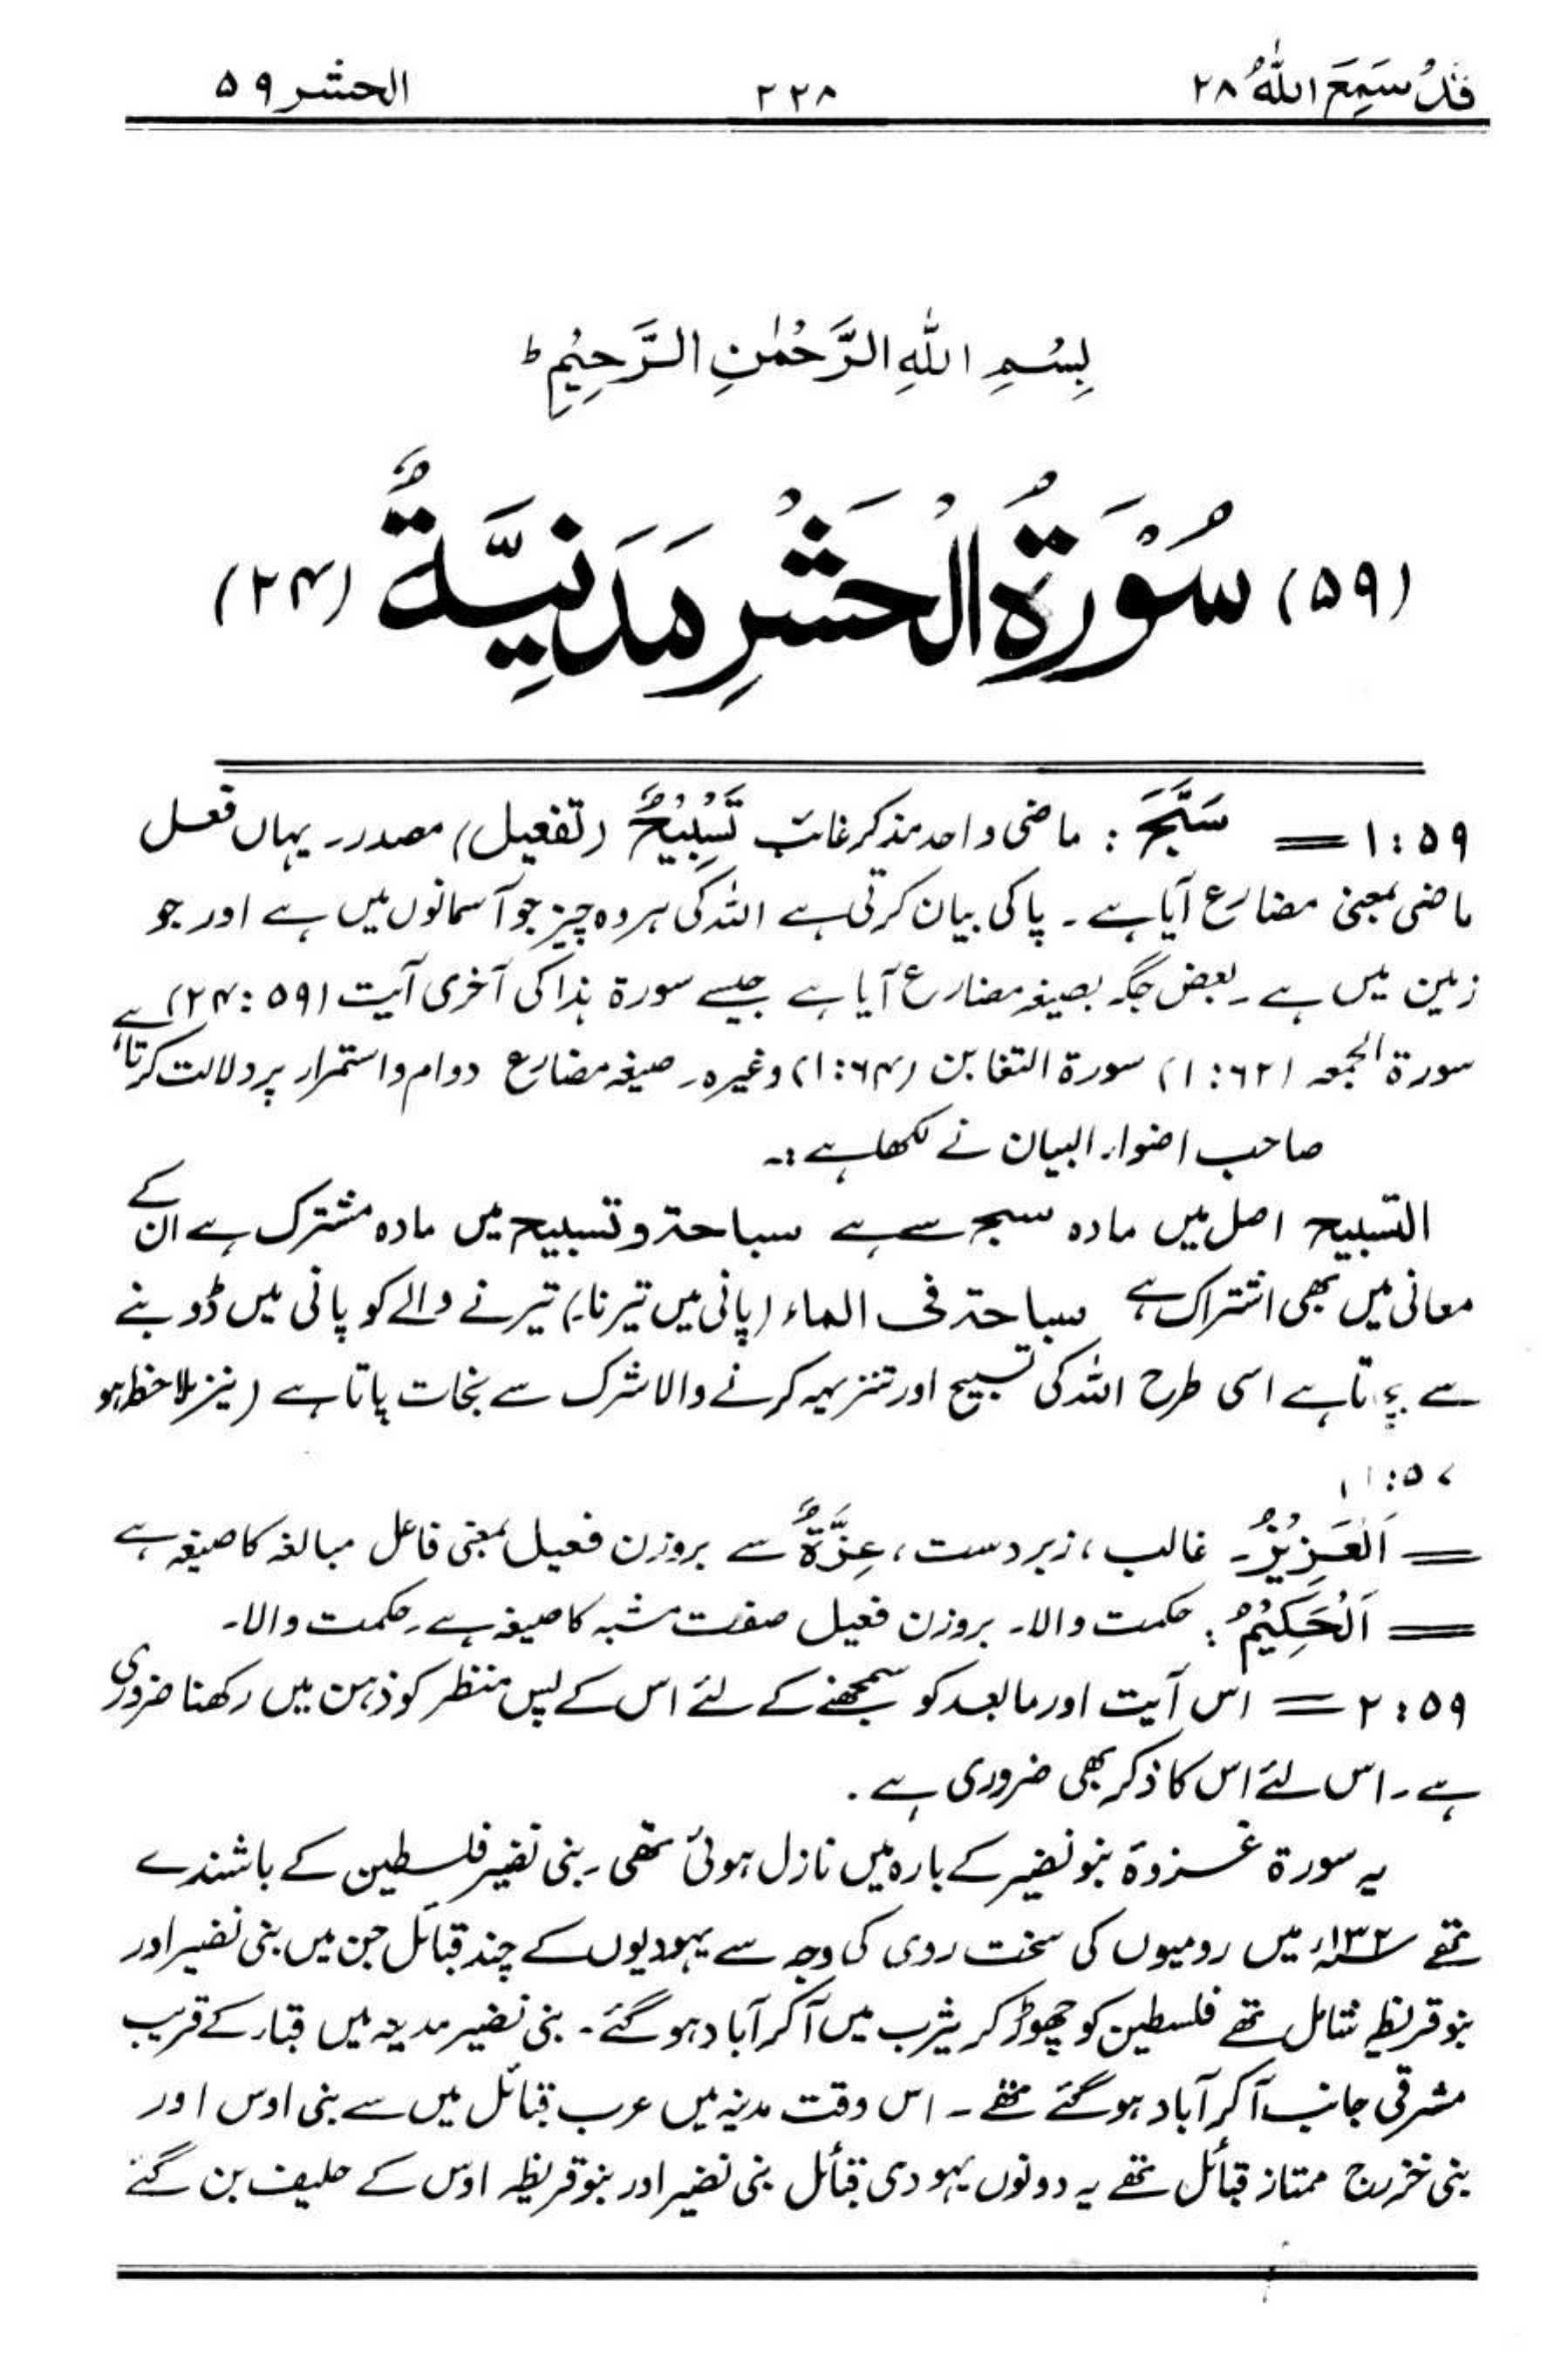 قَدْ سَمِعَ اللّٰهُ ۲۸ ۲۲۸ الحشر ۵۹
بِسْمِ اللّٰهِ الرَّحْمٰنِ الرَّحِيْمِ ط
(۵۹) سُوْرَةُ الْحَشْرِ مَدَنِيَّةٌ (۲۴)
۵۹: ۱ = سَبَّحَ : ماضی واحد مذکر غائب تَسْبِيْحٌ (تفعیل) مصدر۔ یہاں فعل
ماضی بمعنی مضارع آیا ہے ۔ پاکی بیان کرتی ہے اللہ کی ہر وہ چیز جو آسمانوں میں ہے اور جو
زمین میں ہے ۔ بعض جگہ بصیغہ مضارع آیا ہے جیسے سورۃ ہذا کی آخری آیت (۵۹: ۲۴)
سورۃ الجمعہ (۶۲: ۱) سورۃ التغابن (۶۴: ۱) وغیرہ۔ صیغہ مضارع دوام و استمرار پر دلالت کرتا ہے
صاحب اضواء البیان نے لکھا ہے :۔
التسبیح اصل میں مادہ سبح سے ہے سباحۃ و تسبیح میں مادہ مشترک ہے ان کے
معانی میں بھی اشتراک ہے سباحۃ فی الماء (پانی میں تیرنا،) تیرنے والے کو پانی میں ڈوبنے
سے بچاتا ہے اسی طرح اللہ کی تسبیح اور تنزیہہ کرنے والا شرک سے نجات پاتا ہے (نیز ملاحظہ ہو
۵۷: ۱)
= اَلْعَزِيْزُ۔ غالب ، زبردست ، عِزَّةٌ سے بروزن فعیل بمعنی فاعل مبالغہ کا صیغہ ہے
= اَلْحَكِيْمُ : حکمت والا۔ بروزن فعیل صفت مشبہ کا صیغہ ہے۔ حکمت والا۔
۵۹: ۲ = اس آیت اور مابعد کو سمجھنے کے لئے اس کے پس منظر کو ذہن میں رکھنا ضروری
ہے۔ اس لئے اس کا ذکر بھی ضروری ہے ۔
یہ سورۃ غزوۃ بنو نضیر کے بارہ میں نازل ہوئی تھی ۔ بنی نضیر فلسطین کے باشندے
تھے ۱۳۲ء میں رومیوں کی سخت روی کی وجہ سے یہودیوں کے چند قبائل جن میں بنی نضیر اور
بنو قریظہ شامل تھے فلسطین کو چھوڑ کر یثرب میں آکر آباد ہو گئے ۔ بنی نضیر مدینہ میں قبار کے قریب
مشرقی جانب آکر آباد ہو گئے تھے ۔ اس وقت مدینہ میں عرب قبائل میں سے بنی اوس اور
بنی خزرج ممتاز قبائل تھے یہ دونوں یہودی قبائل بنی نضیر اور بنو قریظہ اوس کے حلیف بن گئے